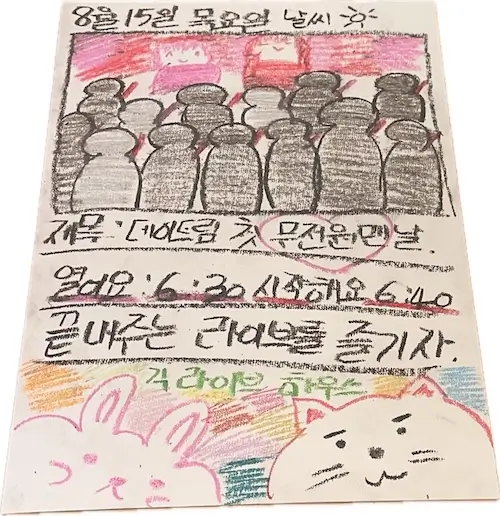 8월 15일 목요일 날씨
제목: 데이드림 첫 무전원맨날.
열어요:6:30 시작해요 6:40
끝내주는 라이브를 즐기자.
각 라이브 하우스